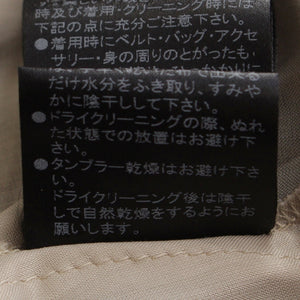 時及び着用・クリーニング時には
下記の点に充分ご注意下さい。
●着用時にベルト・バッグ・アクセ
サリー・身の周りのとがったも
だけ水分をふき取り、すみや
かに陰干しして下さい。
●ドライクリーニングの際、ぬれ
た状態での放置はお避け下さ
い。
●タンブラー乾燥はお避け下さ
い。
●ドライクリーニング後は陰干
しで自然乾燥をするようにお
願いします。